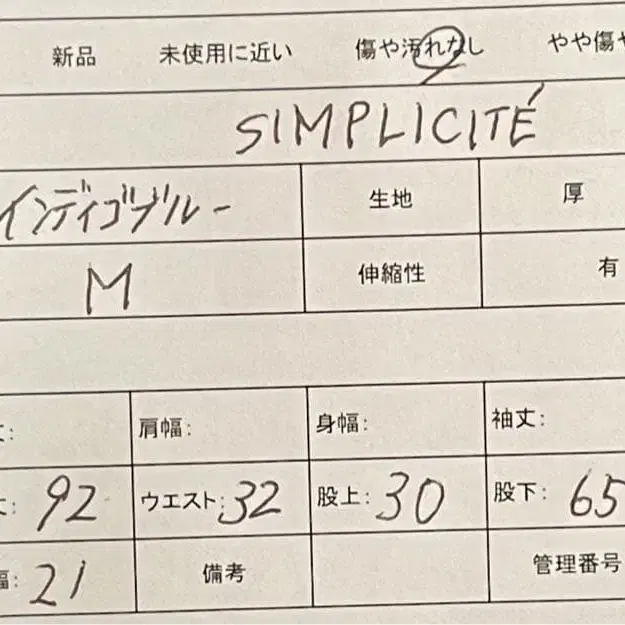 新品 未使用に近い 傷や汚れなし やや傷や
SIMPLICITÉ
インディゴブルー 生地 厚
M 伸縮性 有
丈: 肩幅: 身幅: 袖丈:
丈: 92 ウエスト: 32 股上: 30 股下: 65
幅: 21 備考 管理番号